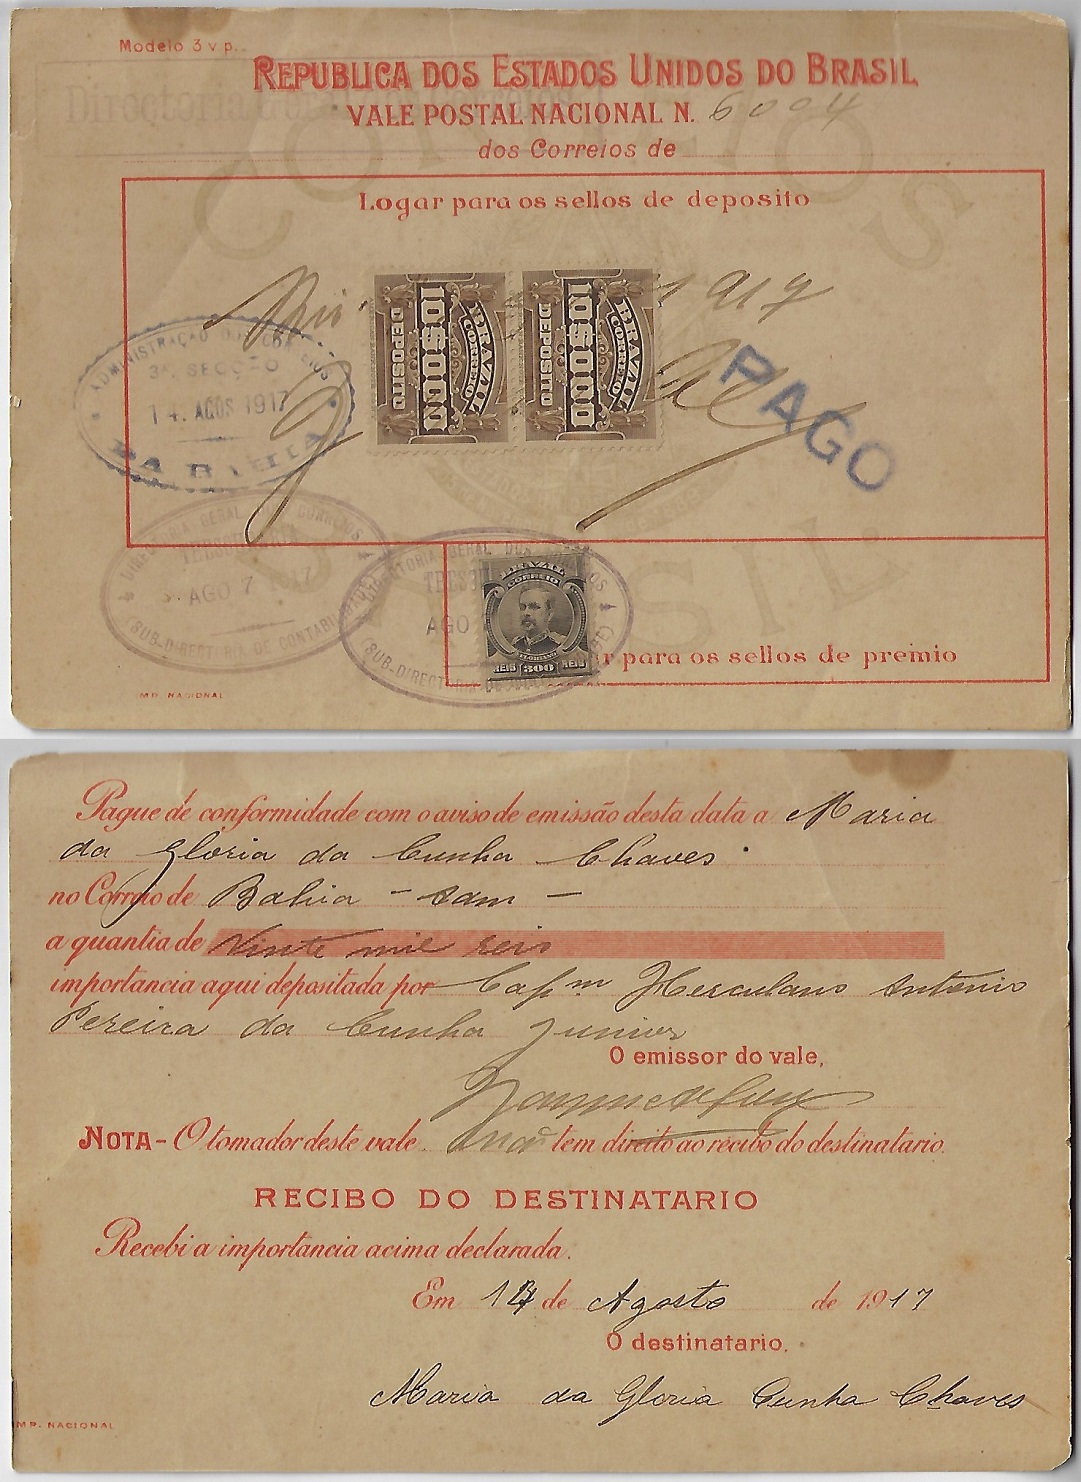 Modelo 3 v p.
REPUBLICA DOS ESTADOS UNIDOS DO BRASIL
VALE POSTAL NACIONAL N. 6094
dos Correios de
CORREIOS
Logar para os sellos de deposito
Rio 1917
BRAZIL CORREIO 10$000 DEPOSITO
BRAZIL CORREIO 10$000 DEPOSITO
PAGO
ADMINISTRAÇÃO DOS CORREIOS
3ª. SECÇÃO
14. AGOS 1917
DA BAHIA
BRASIL
DIRECTORIA GERAL DOS CORREIOS
AGO 7 1917
(SUB-DIRECTORIA DE CONTABILIDADE)
DIRECTORIA GERAL DOS CORREIOS
AGO
(SUB-DIRECTORIA
BRAZIL
CORREIO
FLORIANO
REIS 300 REIS
r para os sellos de premio
IMP. NACIONAL
Pague de conformidade com o aviso de emissão desta data a Maria
da Gloria da Cunha Chaves.
no Correio de Bahia -
a quantia de Vinte mil reis
importancia aqui depositada por Capm Herculano Antonio
Pereira da Cunha Junior
O emissor do vale,
NOTA - O tomador deste vale não tem direito ao recibo do destinatario.
RECIBO DO DESTINATARIO
Recebi a importancia acima declarada.
Em 14 de Agosto de 1917
O destinatario,
Maria da Gloria Cunha Chaves
IMP. NACIONAL